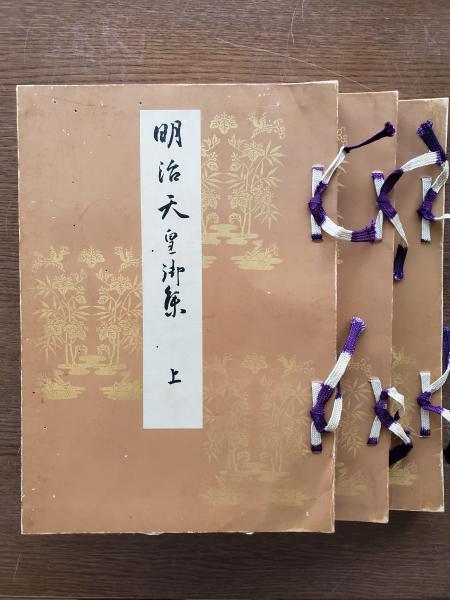 明治天皇御集
上